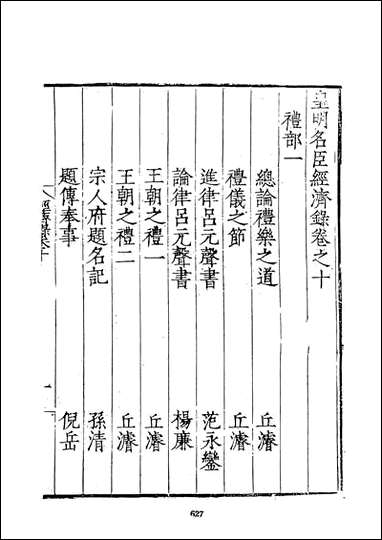 皇明名臣經濟錄卷之十
禮部一
總論禮樂之道 丘濬
禮儀之節 丘濬
進律呂元聲書 范永鑾
論律呂元聲書 楊廉
王朝之禮一 丘濬
王朝之禮二 丘濬
宗人府題名記 孫清
題傳奉事 倪岳
一
627